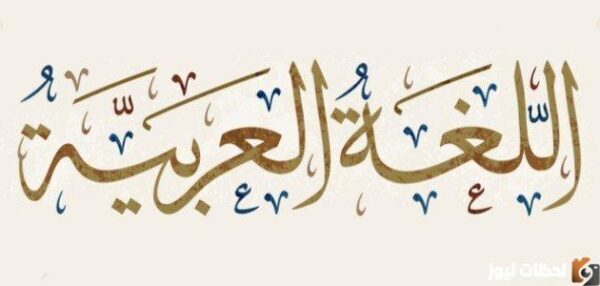 اللُّغَةُ العَرَبِيَّةُ
لحظات نيوز